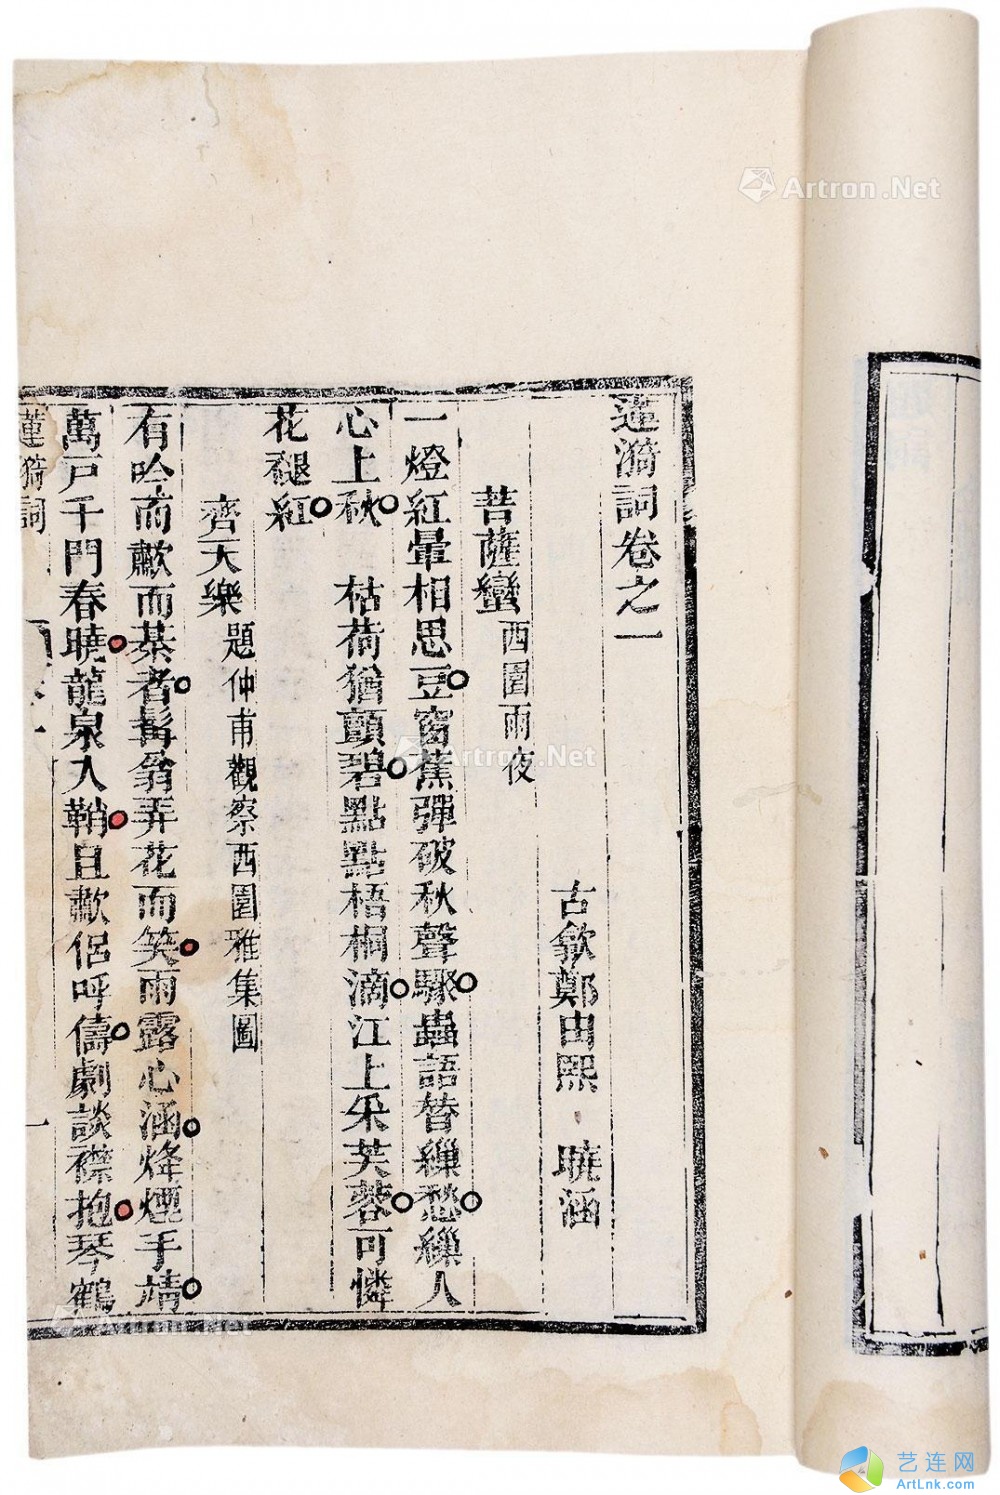 蓮漪詞卷之一
古歙鄭由熙 曉涵
菩薩蠻 西園雨夜
一燈紅暈相思豆窗蕉彈破秋聲驟蟲語替纏愁纏人
心上秋 枯荷猶顫碧點點梧桐滴江上采芙蓉可憐
花褪紅
齊天樂 題仲甫觀察西園雅集圖
有吟而歗而棊者髯翁弄花而笑雨露心涵烽煙手靖
萬戶千門春曉龍泉入鞘且歗侶呼儔劇談襟抱琴鶴
蓮漪詞 一
Artron.Net
Artron.Net
Artron.Net
艺连网
ArtLnk.com